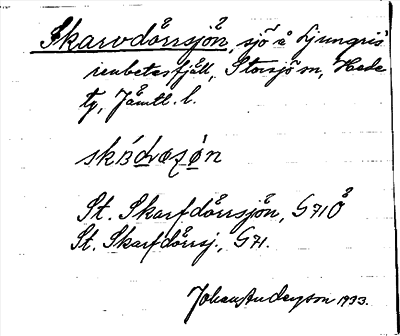 Skarvdörrsjön, sjö å Ljungris
renbetesfjäll, Storsjö sn, Hede
tg, Jämtl. l.
St. Skarfdörrsjön, G 71 Ö
St. Skarfdörrsj., G 71.
Johan Anderson 1933.